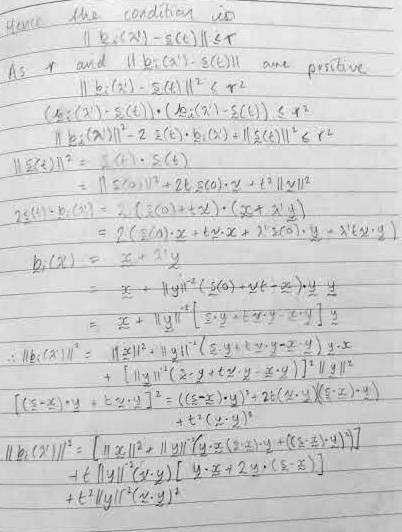 Hence the condition is
‖b_i(λ') - s(t)‖ ≤ r
As r and ‖b_i(λ') - s(t)‖ are positive
‖b_i(λ') - s(t)‖² ≤ r²
(b_i(λ') - s(t))·(b_i(λ') - s(t)) ≤ r²
‖b_i(λ')‖² - 2 s(t)·b_i(λ') + ‖s(t)‖² ≤ r²
‖s(t)‖² = s(t)·s(t)
= ‖s(0)‖² + 2t s(0)·v + t²‖v‖²
2s(t)·b_i(λ') = 2(s(0)+tv)·(x+λ'y)
= 2(s(0)·x + tv·x + λ's(0)·y + λ'tv·y)
b_i(λ') = x + λ'y
= x + ‖y‖⁻²(s(0)+vt-x)·y y
= x + ‖y‖⁻²[s·y+tv·y-x·y] y
∴ ‖b_i(λ')‖² = ‖x‖² + ‖y‖⁻²(s·y+tv·y-x·y) y·x
+ [‖y‖⁻²(s·y+tv·y-x·y)]²‖y‖²
[(s-x)·y + tv·y]² = ((s-x)·y)² + 2t(v·y)((s-x)·y)
+ t²(v·y)²
‖b_i(λ')‖² = [‖x‖² + ‖y‖⁻²(y·x(s-x)·y + ((s-x)·y)²)]
+ t‖y‖⁻²(v·y)[y·x + 2y·(s-x)]
+ t²‖y‖⁻²(v·y)²